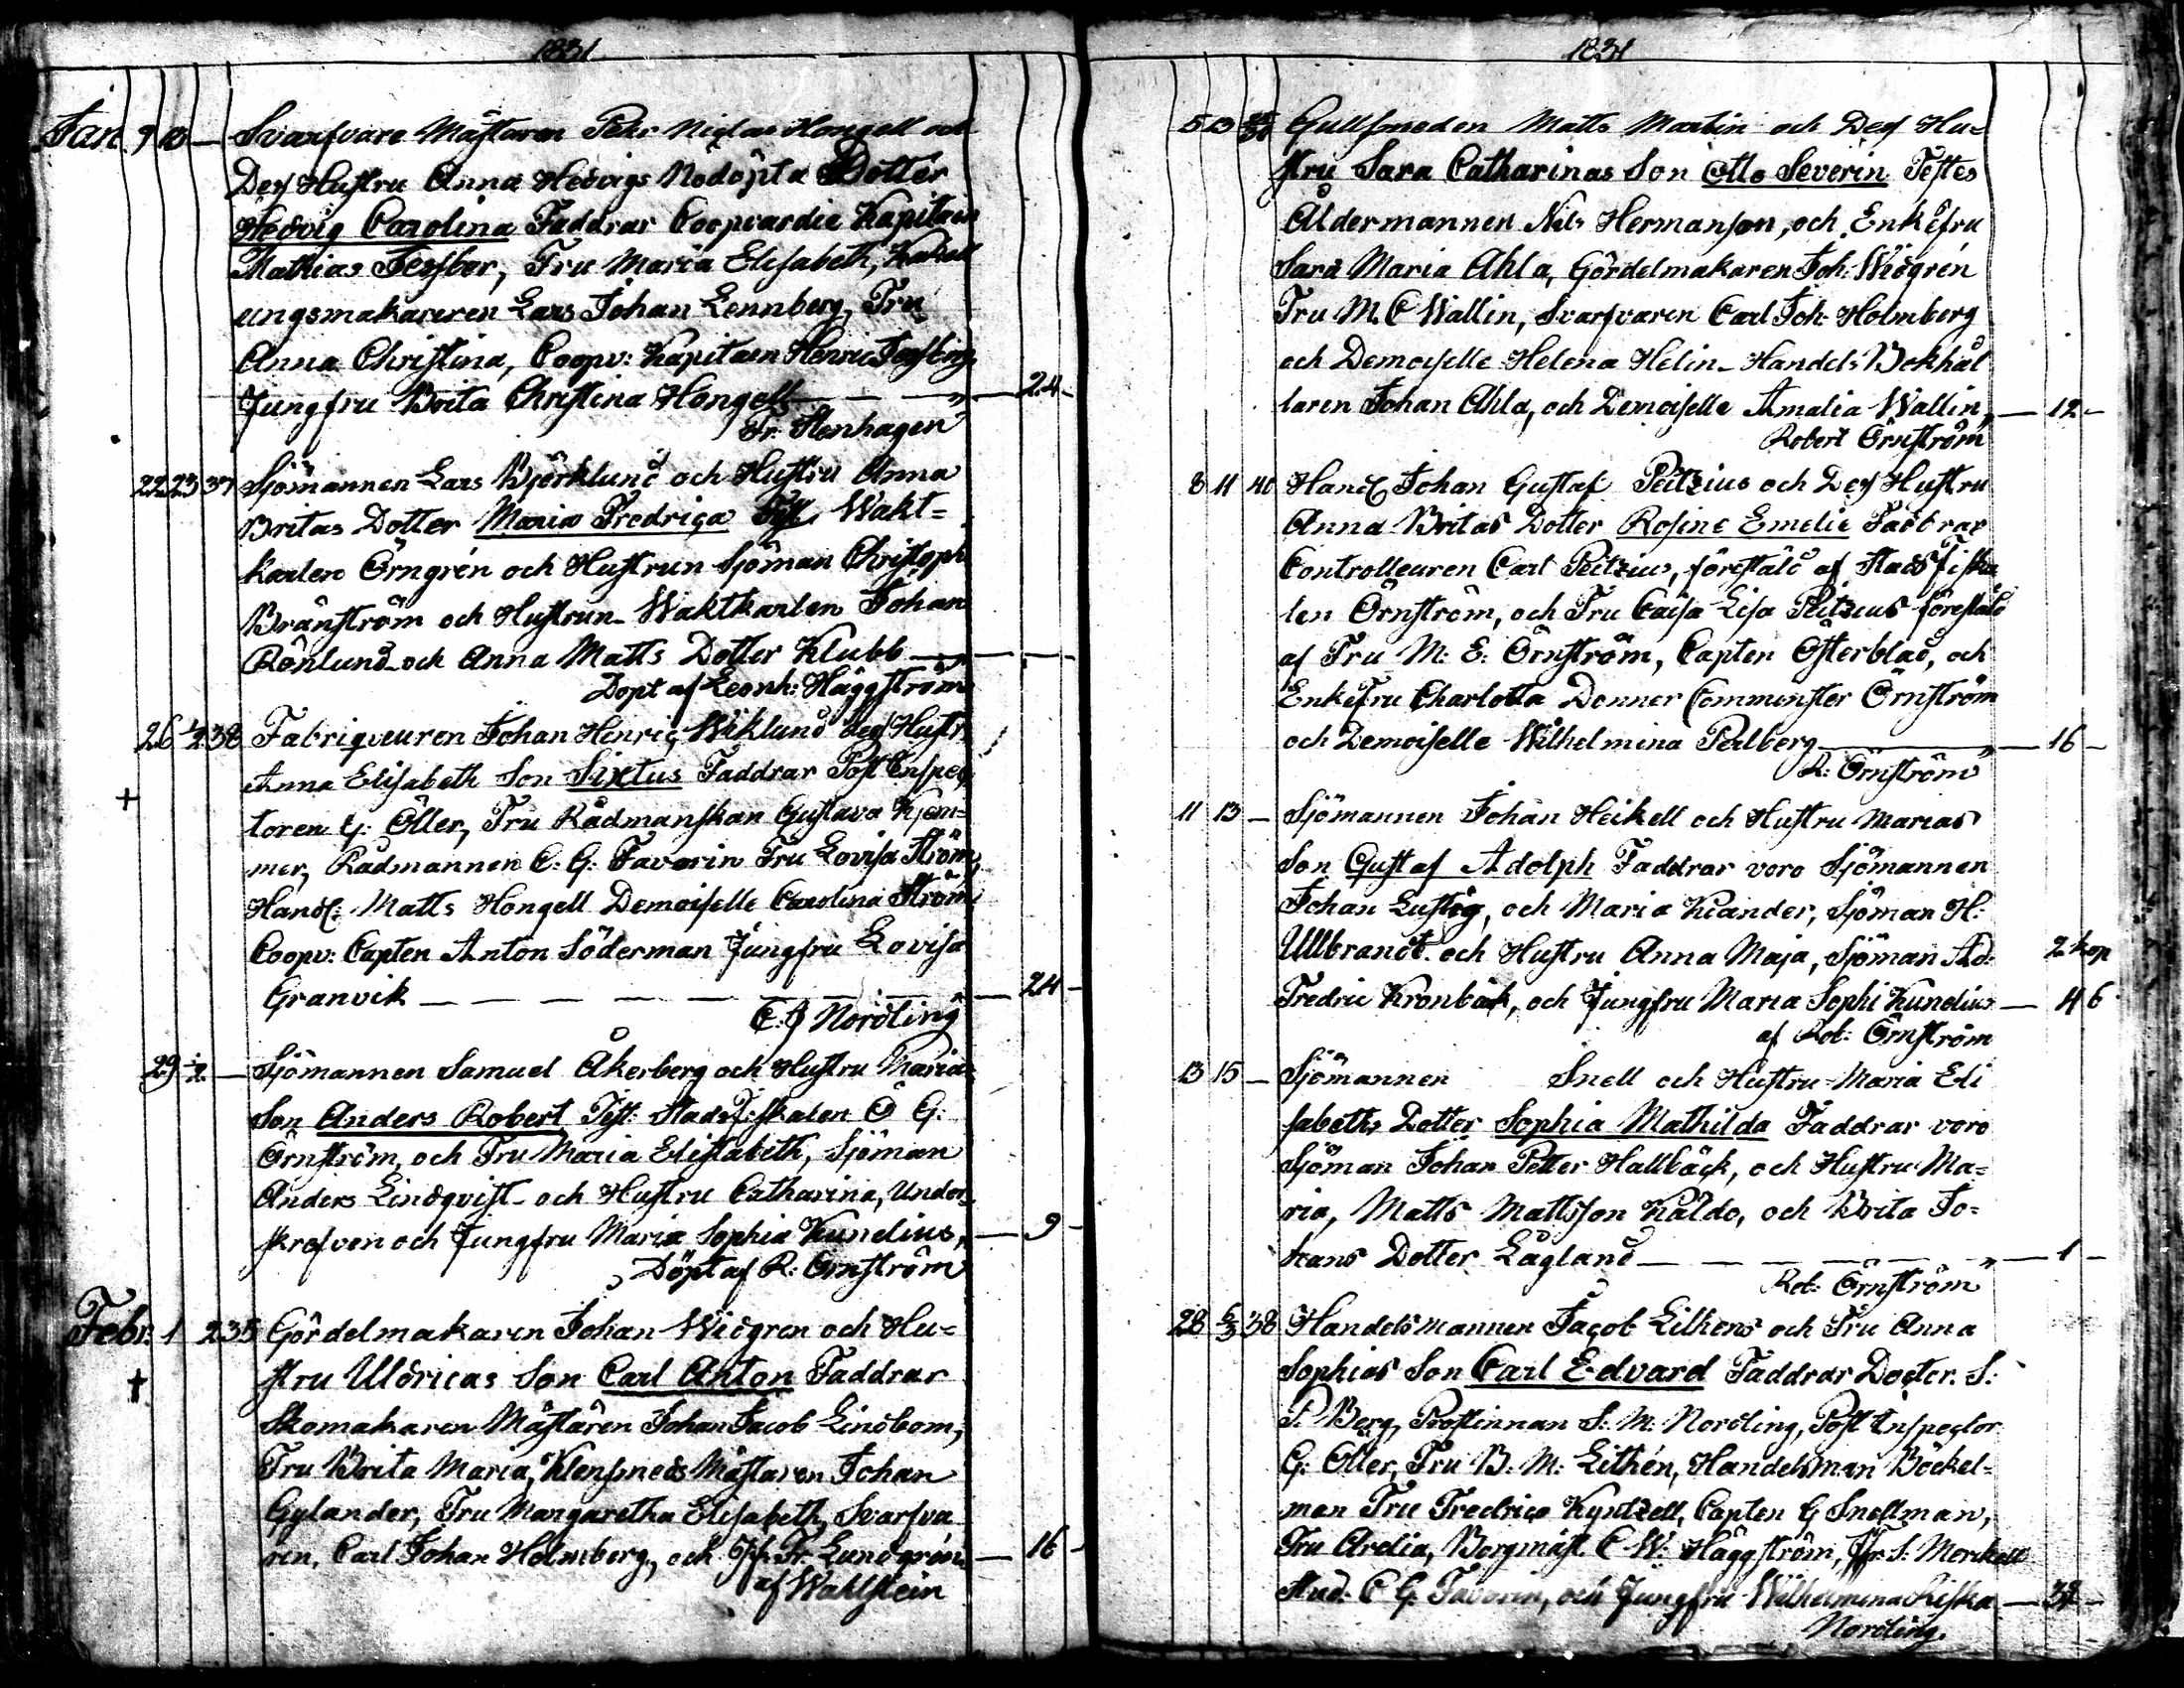 1831
Jan. 9 10 — Svarfvare Mästaren Pehr Niclas Hongell och
Dess Hustru Anna Hedvigs Nödöpta Dotter
Hedvig Carolina Faddrar Coopvardie Kapitaen
Mathias , Fru Maria Elisabeth, Kakel
ungsmakareren Lars Johan Lennberg, Fru
Anna Christina, Coopv: Kapitaen Henric
Jungfru Brita Christina Hongell — — „ — 24 —
Fr. Stenhagen
22 23 37 Sjömannen Lars Björklund och Hustru Anna
Britas Dotter Maria Fredrica Test. Wakt=
karlen Örngrén och Hustrun Sjöman Christoph
Bränström och Hustrun Waktkarlen Johan
Rönlund och Anna Matts Dotter Klubb — — —
Döpt af Leonh: Häggström
26 1/2 38 Fabriqueuren Johan Henric Wiklund Dess Hustr.
Anna Elisabeth Son Sixtus Faddrar Post Inspec
+ toren G: Öller, Fru Rådmanskan Gustava Kjem=
mer, Rådmannen C. G. Favorin Fru Lovisa Ström,
Handl: Matts Hongell Demoiselle Carolina Ström
Coopv: Capten Anton Söderman Jungfru Lovisa
Granvik — — — — — — „ — 24 —
C. J Nordling
29 1/2 — Sjömannen Samuel Åkerberg och Hustru Marias
Son Anders Robert Test: Stadsfiskalen C G:
Örnström, och Fru Maria Elistabeth, Sjöman
Anders Lindqvist och Hustru Catharina, Under
skrefven och Jungfru Maria Sophia Kunelius, — 9 —
Döpt af R: Örnström
Febr: 1 2 35 Gördelmakaren Johan Widgren och Hu=
+ stru Uldricas Son Carl Anton Faddrar
Skomakaren Mästaren Johan Jacob Lindbom,
Fru Brita Maria, Klensmeds Mästaren Johan
Gylander, Fru Margaretha Elisabeth, Svarfva
ren, Carl Johan Holmberg, och Jfr Fr. Lundgrén — 16 —
af Wahlstein
1831
5 13 Gullsmeden Matts Martin och Dess Hu=
stru Sara Catharinas Son Otto Severin Testes
Åldermannen Nils Hermanson, och Enkefru
Sara Maria Ahla, Gördelmakaren Joh: Widgrén
Fru M. C Wallin, Svarfvaren Carl Joh: Holmberg
och Demoiselle Helena Helin Handels Bokhål
laren Johan Ahla, och Demoiselle Amalia Wallin „ — 12 —
Robert Örnström
8 11 40 Handl Johan Gustaf Peitzius och Dess Hustru
Anna Britas Dotter Rosine Emelie Faddrar
Controlleuren Carl Peitzius, förestäld af Stadsfiska
len Örnström, och Fru Caisa Lisa Peitzius förestäld
af Fru M: E: Örnström, Capten Österblad, och
Enkefru Charlotta Donner Comminister Örnström
och Demoiselle Wilhelmina Perlberg — „ — 16 —
R: Örnström
11 13 — Sjömannen Johan Heikell och Hustru Marias
Son Gustaf Adolph Faddrar voro Sjömannen
Johan Lustig, och Maria Kiander, Sjöman H:
Ullbrandt och Hustru Anna Maja, Sjöman Ad: 2 kop
Fredric Kronbäck, och Jungfru Maria Sophi Kunelius — 46
af Rob: Örnström
13 15 — Sjömannen Snell och Hustru Maria Eli
sabeths Dotter Sophia Mathilda Faddrar voro
Sjöman Johan Petter Hallbäck, och Hustru Ma=
ria, Matts Mattsson Kåldo, och Brita Jo=
hans Dotter Lågland — — — — „ — 1 —
Rob: Örnström
28 6/3 38 Handelsmannen Jacob Lithens och Fru Anna
Sophias Son Carl Edvard Faddrar Docter. S:
P. Berg, Prostinnan S: M: Nordling, Post Inspector
G: Öller, Fru B: M: Lithén, Handelsman Böckel=
man Fru Fredrica Kyntzell, Capten G Snellman,
Fru Ardia, Borgmäst. C W: Häggström, Jfr. S: Merckell
Stud. C G: Favorin, och Jungfru Wilhelmina Riska —
Nordling.